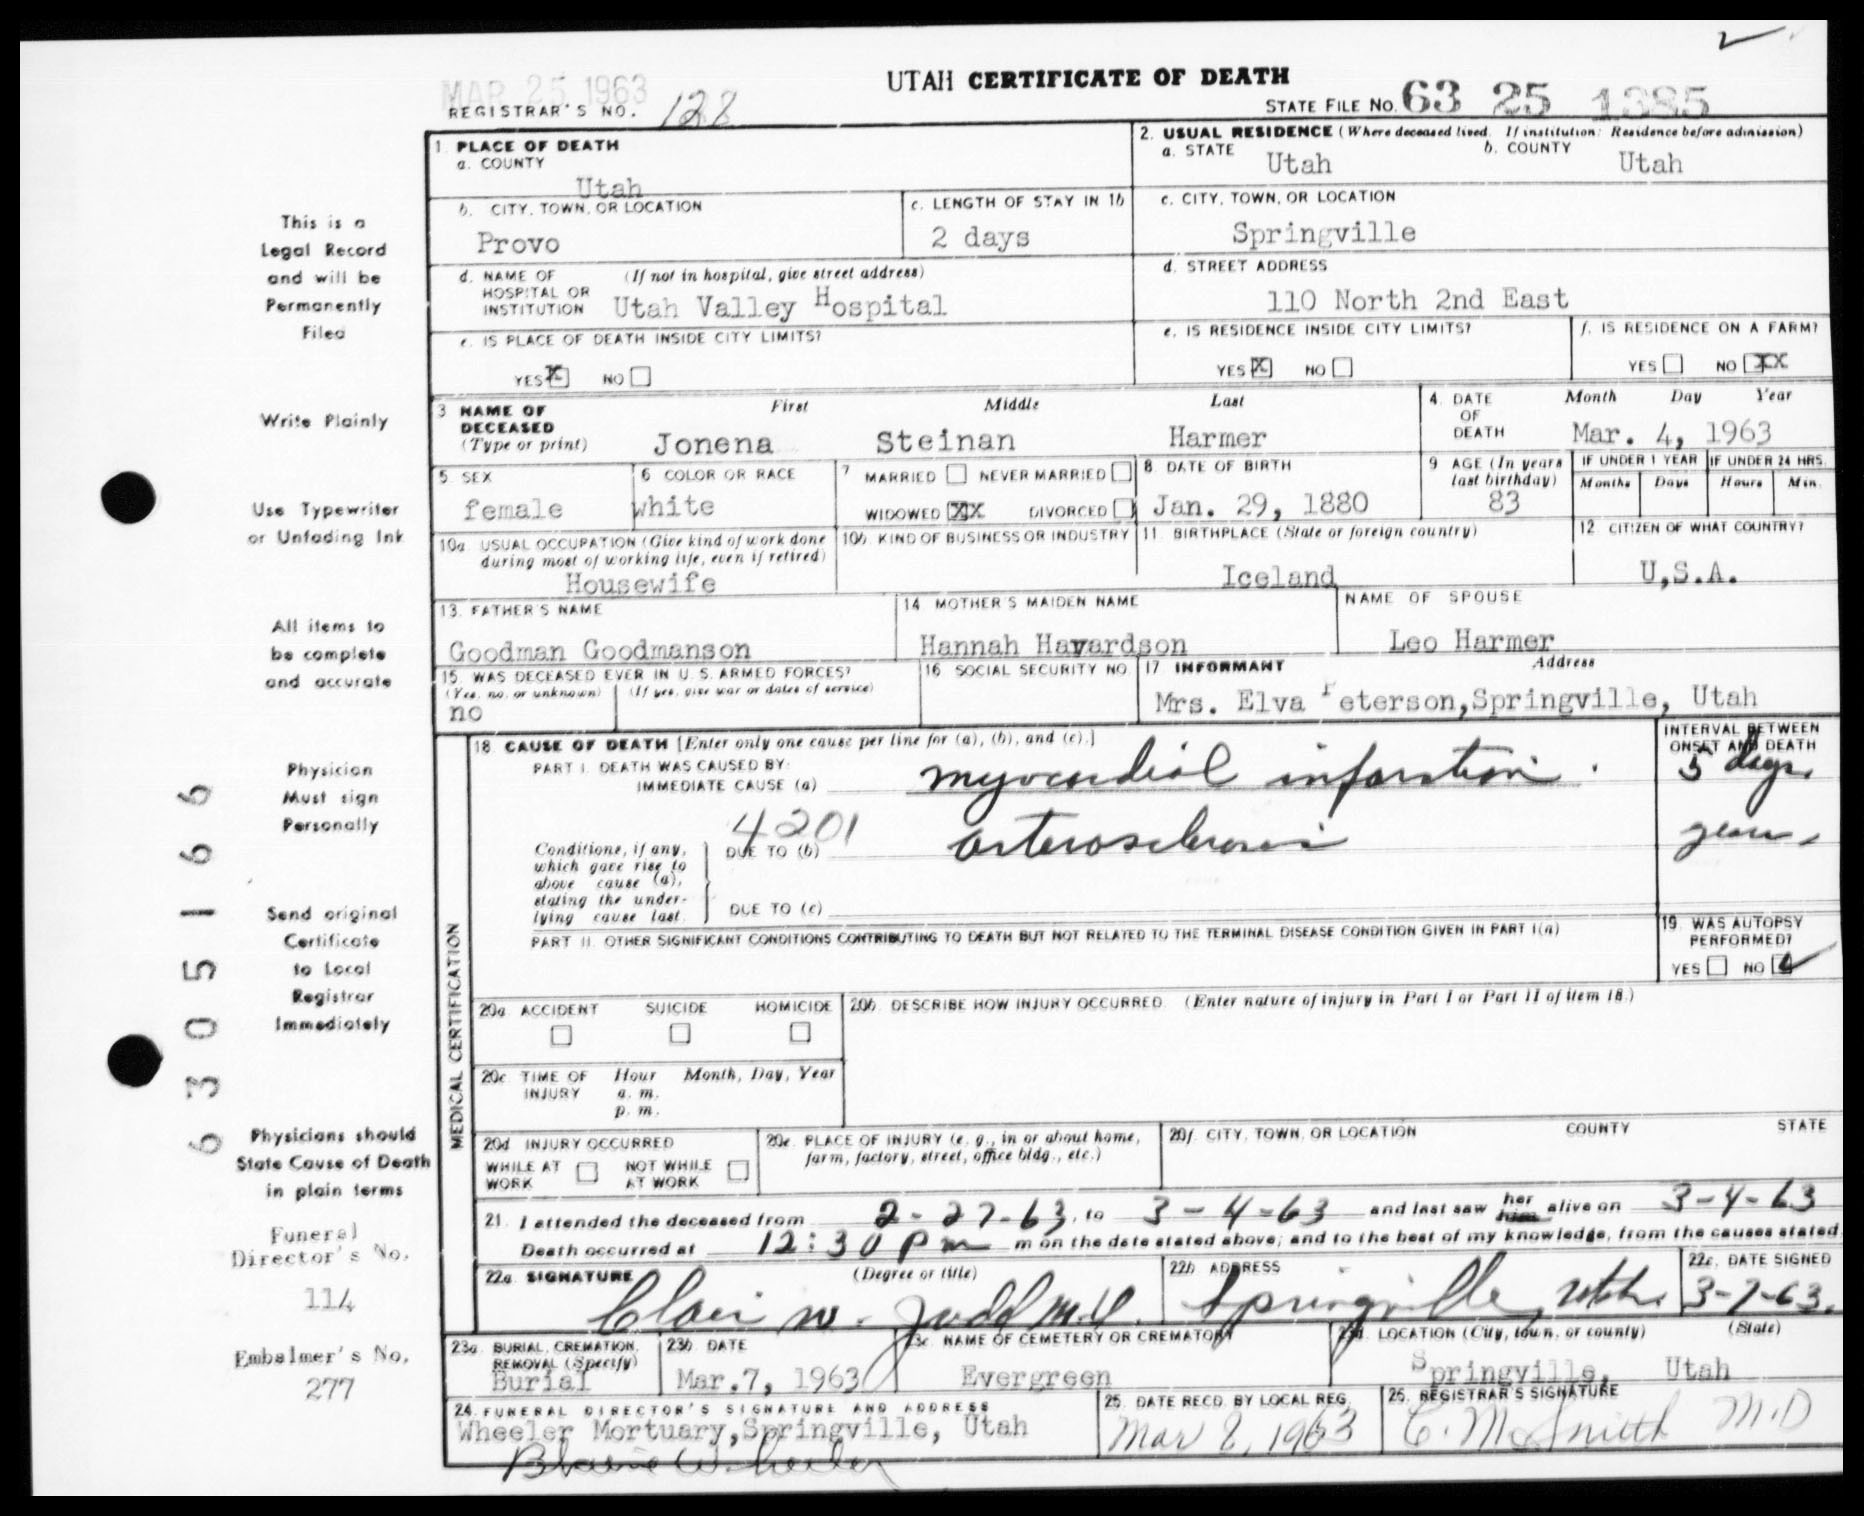 MAR 25 1963
UTAH CERTIFICATE OF DEATH
REGISTRAR'S NO. 128
STATE FILE NO. 63 25 1385
1. PLACE OF DEATH
a. COUNTY
Utah
2. USUAL RESIDENCE (Where deceased lived. If institution: Residence before admission)
a. STATE Utah b. COUNTY Utah
b. CITY, TOWN, OR LOCATION
Provo
c. LENGTH OF STAY IN 1b
2 days
c. CITY, TOWN, OR LOCATION
Springville
d. NAME OF HOSPITAL OR INSTITUTION (If not in hospital, give street address)
Utah Valley Hospital
d. STREET ADDRESS
110 North 2nd East
e. IS PLACE OF DEATH INSIDE CITY LIMITS?
YES X NO
e. IS RESIDENCE INSIDE CITY LIMITS?
YES X NO
f. IS RESIDENCE ON A FARM?
YES NO XX
3 NAME OF DECEASED (Type or print)
First Middle Last
Jonena Steinan Harmer
4. DATE OF DEATH
Month Day Year
Mar. 4, 1963
5. SEX
female
6 COLOR OR RACE
white
7 MARRIED NEVER MARRIED
WIDOWED XX DIVORCED
8 DATE OF BIRTH
Jan. 29, 1880
9 AGE (In years last birthday)
83
IF UNDER 1 YEAR
Months Days
IF UNDER 24 HRS.
Hours Min.
10a USUAL OCCUPATION (Give kind of work done during most of working life, even if retired)
Housewife
10b. KIND OF BUSINESS OR INDUSTRY
11. BIRTHPLACE (State or foreign country)
Iceland
12 CITIZEN OF WHAT COUNTRY?
U.S.A.
13. FATHER'S NAME
Goodman Goodmanson
14 MOTHER'S MAIDEN NAME
Hannah Havardson
NAME OF SPOUSE
Leo Harmer
15. WAS DECEASED EVER IN U. S. ARMED FORCES?
(Yes, no, or unknown) (If yes, give war or dates of service)
no
16 SOCIAL SECURITY NO.
17 INFORMANT Address
Mrs. Elva Peterson, Springville, Utah
MEDICAL CERTIFICATION
18. CAUSE OF DEATH [Enter only one cause per line for (a), (b), and (c).]
INTERVAL BETWEEN ONSET AND DEATH
PART I. DEATH WAS CAUSED BY:
IMMEDIATE CAUSE (a) myocardial infarction. 5 days.
4201
Conditions, if any, which gave rise to above cause (a), stating the underlying cause last.
DUE TO (b) arterosclerosis years.
DUE TO (c)
PART II. OTHER SIGNIFICANT CONDITIONS CONTRIBUTING TO DEATH BUT NOT RELATED TO THE TERMINAL DISEASE CONDITION GIVEN IN PART I(a)
19. WAS AUTOPSY PERFORMED?
YES NO ✓
20a ACCIDENT SUICIDE HOMICIDE
20b. DESCRIBE HOW INJURY OCCURRED. (Enter nature of injury in Part I or Part II of item 18.)
20c. TIME OF INJURY Hour Month, Day, Year
a. m.
p. m.
20d INJURY OCCURRED
WHILE AT WORK NOT WHILE AT WORK
20e. PLACE OF INJURY (e. g., in or about home, farm, factory, street, office bldg., etc.)
20f. CITY, TOWN, OR LOCATION COUNTY STATE
21. I attended the deceased from 2-27-63, to 3-4-63 and last saw her him alive on 3-4-63
Death occurred at 12:30 pm m on the date stated above; and to the best of my knowledge, from the causes stated
22a. SIGNATURE (Degree or title)
Clair W. Judd M.D.
22b. ADDRESS
Springville, Utah.
22c. DATE SIGNED
3-7-63.
23a. BURIAL, CREMATION, REMOVAL (Specify)
Burial
23b. DATE
Mar.7, 1963
23c. NAME OF CEMETERY OR CREMATORY
Evergreen
23d. LOCATION (City, town, or county) (State)
Springville, Utah
24. FUNERAL DIRECTOR'S SIGNATURE AND ADDRESS
Wheeler Mortuary, Springville, Utah
Blaine W. Wheeler
25. DATE RECD. BY LOCAL REG.
Mar 8, 1963
26. REGISTRAR'S SIGNATURE
C. M. Smith M.D
This is a
Legal Record
and will be
Permanently
Filed
Write Plainly
Use Typewriter
or Unfading Ink
All items to
be complete
and accurate
Physician
Must sign
Personally
Send original
Certificate
to Local
Registrar
Immediately
Physicians should
State Cause of Death
in plain terms
Funeral
Director's No.
114
Embalmer's No.
277
6305166